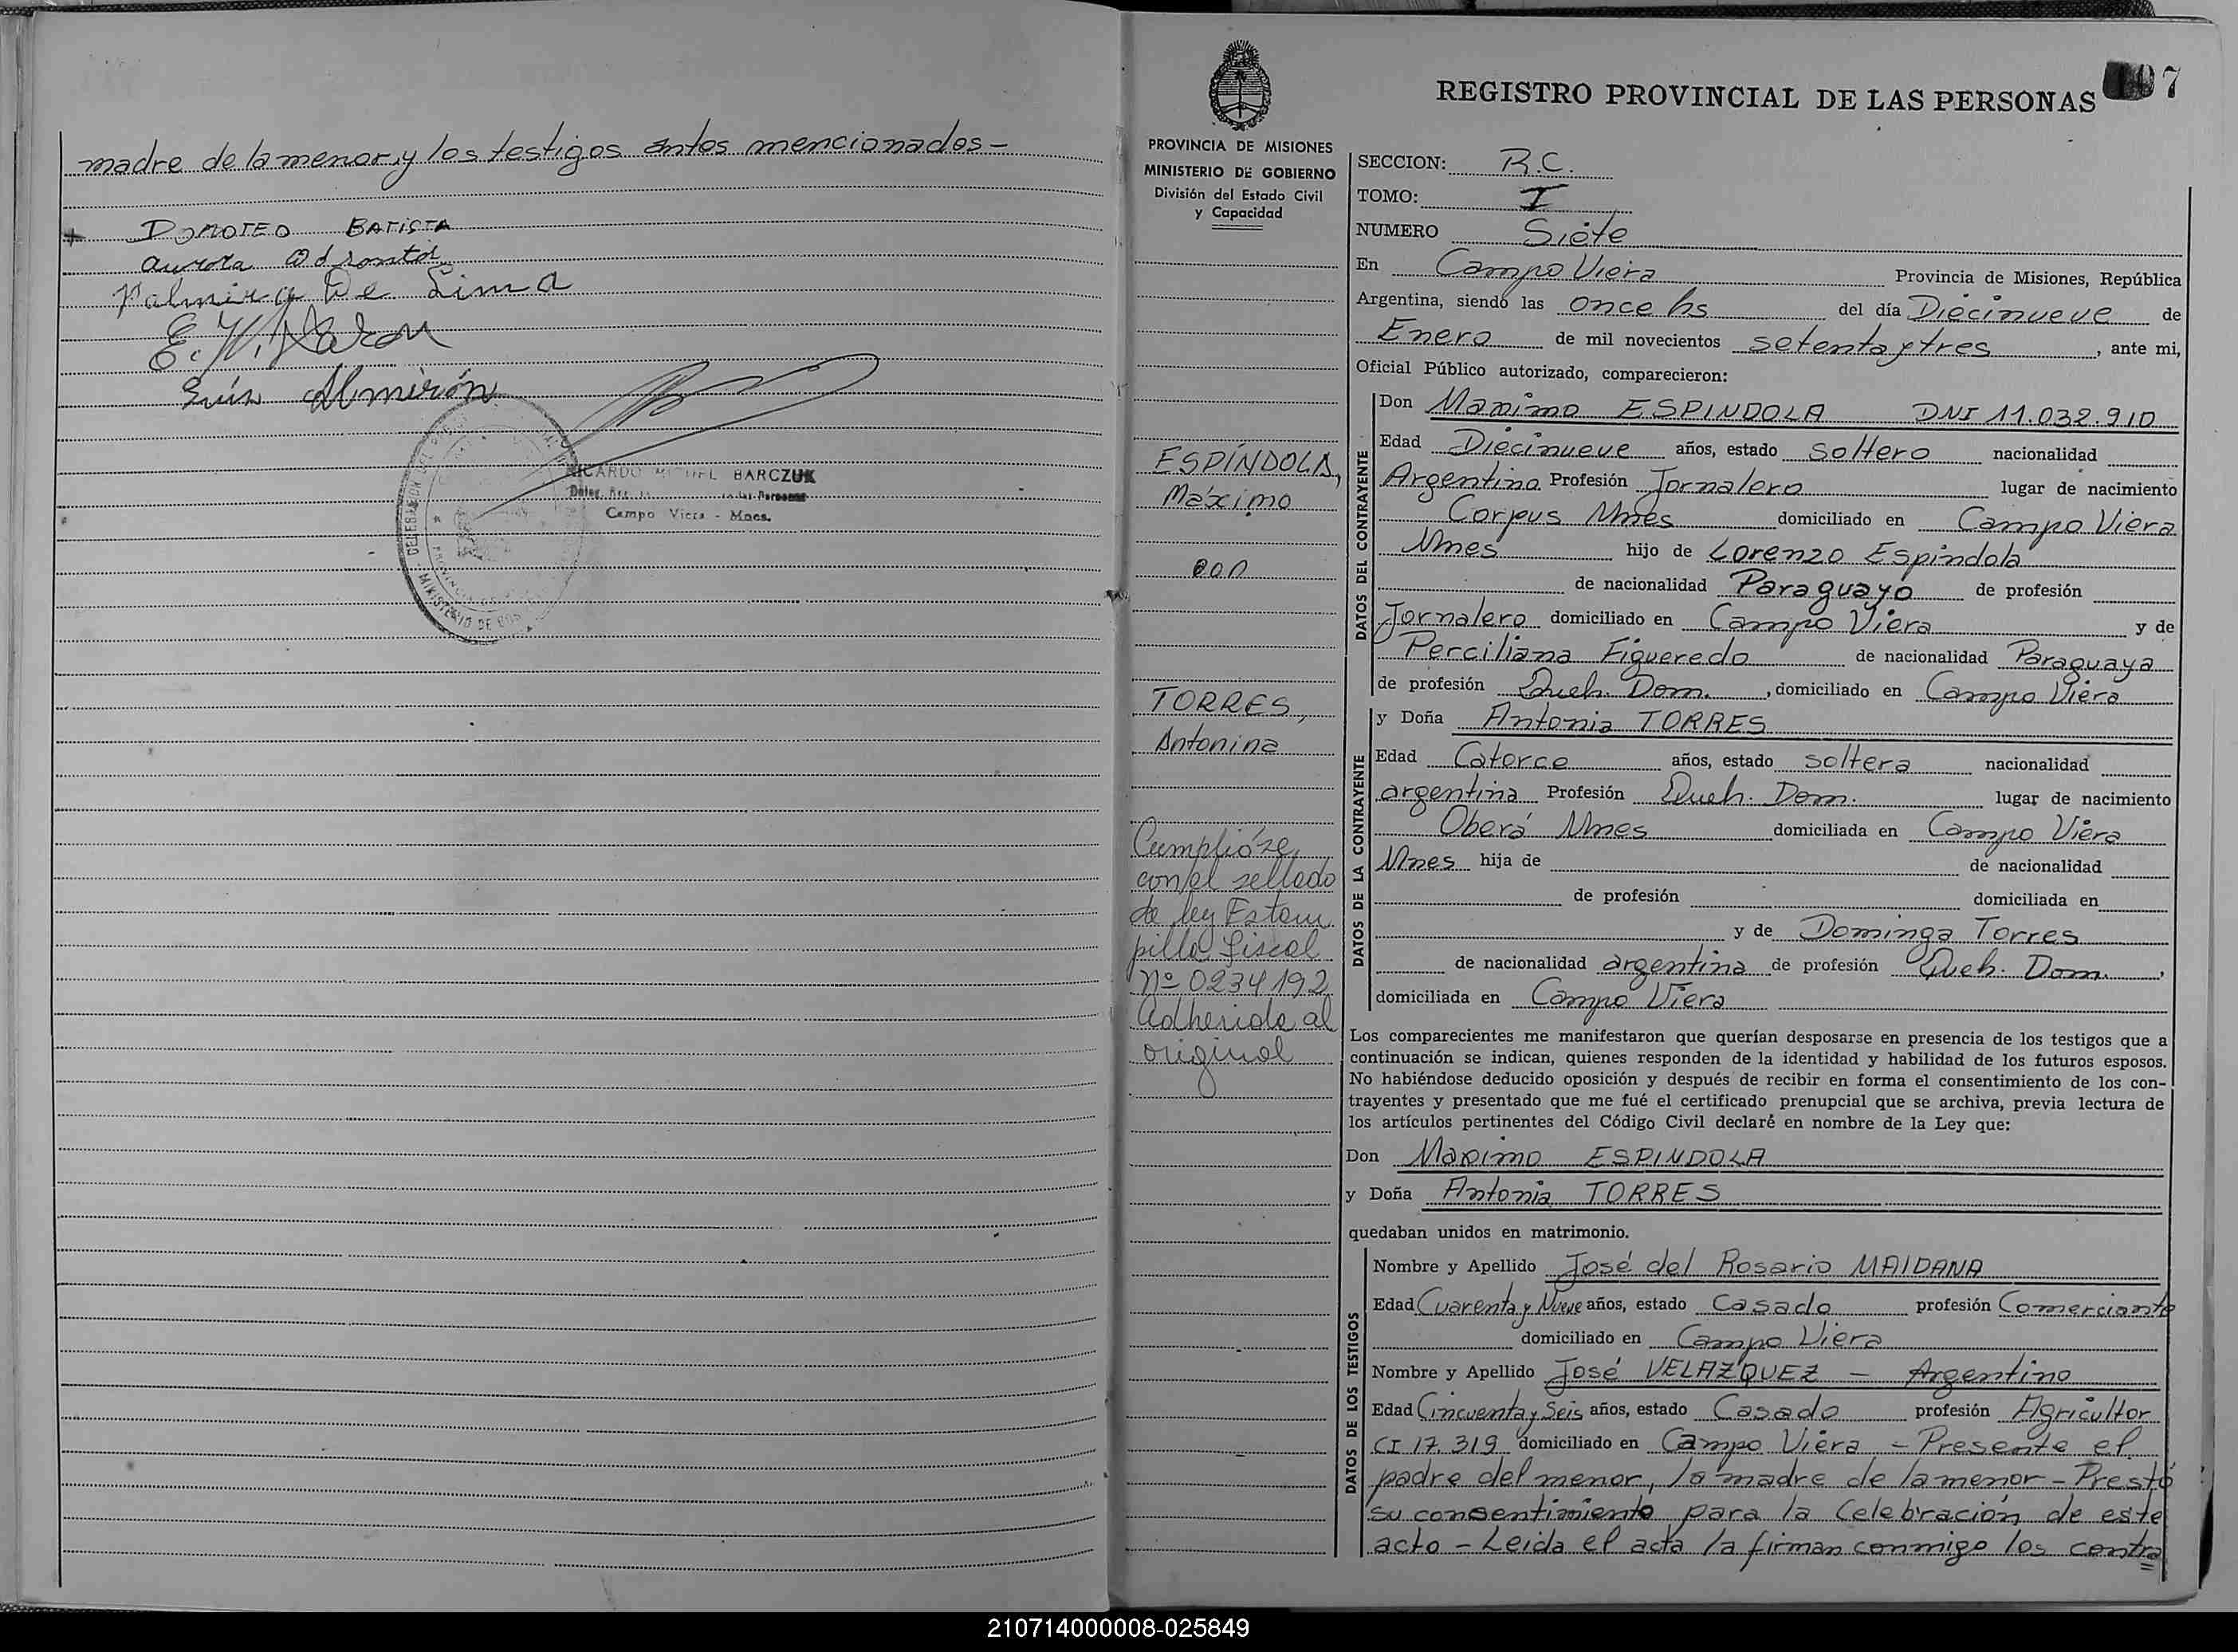 madre de la menor y los testigos antes mencionados -
DOROTEO BATISTA
Aurora
Palmira De Lima
Luis Almirón
RICARDO MIGUEL BARCZUK
Campo Viera - Mnes.
MINISTERIO DE
107
REGISTRO PROVINCIAL DE LAS PERSONAS
PROVINCIA DE MISIONES
MINISTERIO DE GOBIERNO
División del Estado Civil
y Capacidad
ESPÍNDOLA,
Máximo
con
TORRES,
Antonina
Cumplióse
con el sellado
de ley Estam
pilla fiscal
Nº 0234192
adherida al
original
SECCION: R.C.
TOMO: I
NUMERO Siete
En Campo Viera Provincia de Misiones, República
Argentina, siendo las once hs del día Diecinueve de
Enero de mil novecientos setenta y tres, ante mi,
Oficial Público autorizado, comparecieron:
DATOS DEL CONTRAYENTE
Don Maximo ESPINDOLA DNI 11.032.910
Edad Diecinueve años, estado soltero nacionalidad
Argentino Profesión Jornalero lugar de nacimiento
Corpus Mnes domiciliado en Campo Viera
Mnes hijo de Lorenzo Espindola
de nacionalidad Paraguayo de profesión
Jornalero domiciliado en Campo Viera y de
Perciliana Figueredo de nacionalidad Paraguaya
de profesión Queh. Dom., domiciliado en Campo Viera
DATOS DE LA CONTRAYENTE
y Doña Antonia TORRES
Edad Catorce años, estado soltera nacionalidad
argentina Profesión Queh. Dom. lugar de nacimiento
Oberá Mnes domiciliada en Campo Viera
Mnes hija de de nacionalidad
de profesión domiciliada en
y de Dominga Torres
de nacionalidad argentina de profesión Queh. Dom.,
domiciliada en Campo Viera
Los comparecientes me manifestaron que querían desposarse en presencia de los testigos que a
continuación se indican, quienes responden de la identidad y habilidad de los futuros esposos.
No habiéndose deducido oposición y después de recibir en forma el consentimiento de los con-
trayentes y presentado que me fué el certificado prenupcial que se archiva, previa lectura de
los artículos pertinentes del Código Civil declaré en nombre de la Ley que:
Don Maximo ESPINDOLA
y Doña Antonia TORRES
quedaban unidos en matrimonio.
DATOS DE LOS TESTIGOS
Nombre y Apellido José del Rosario MAIDANA
Edad Cuarenta y Nueve años, estado Casado profesión Comerciante
domiciliado en Campo Viera
Nombre y Apellido José VELAZQUEZ - Argentino
Edad Cincuenta y Seis años, estado Casado profesión Agricultor
CI 17.319 domiciliado en Campo Viera - Presente el
padre del menor, la madre de la menor - Prestó
su consentimiento para la Celebración de este
acto - Leida el acta la firman conmigo los contra
210714000008-025849